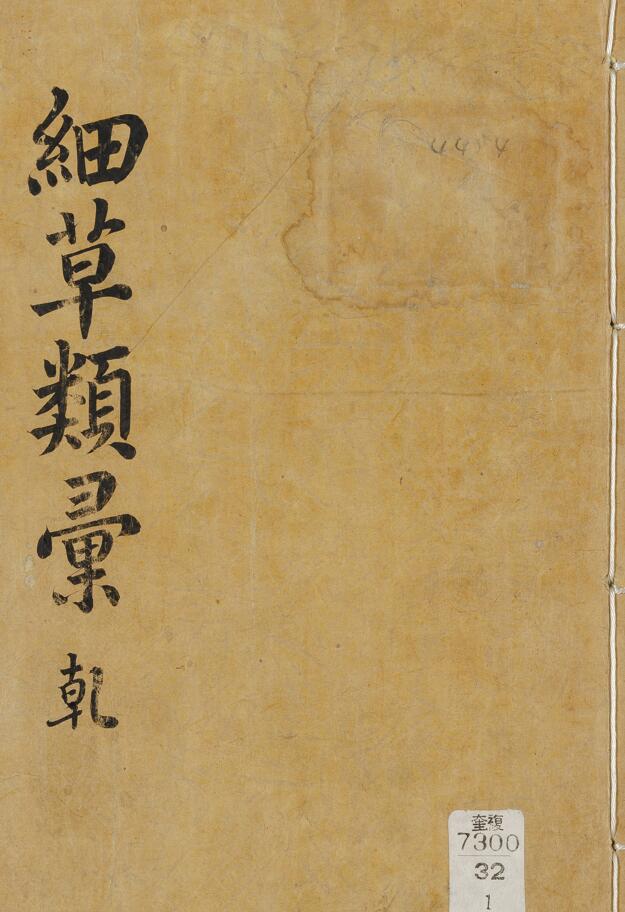 細草類彙 乾
4454
奎複
7300
32
1